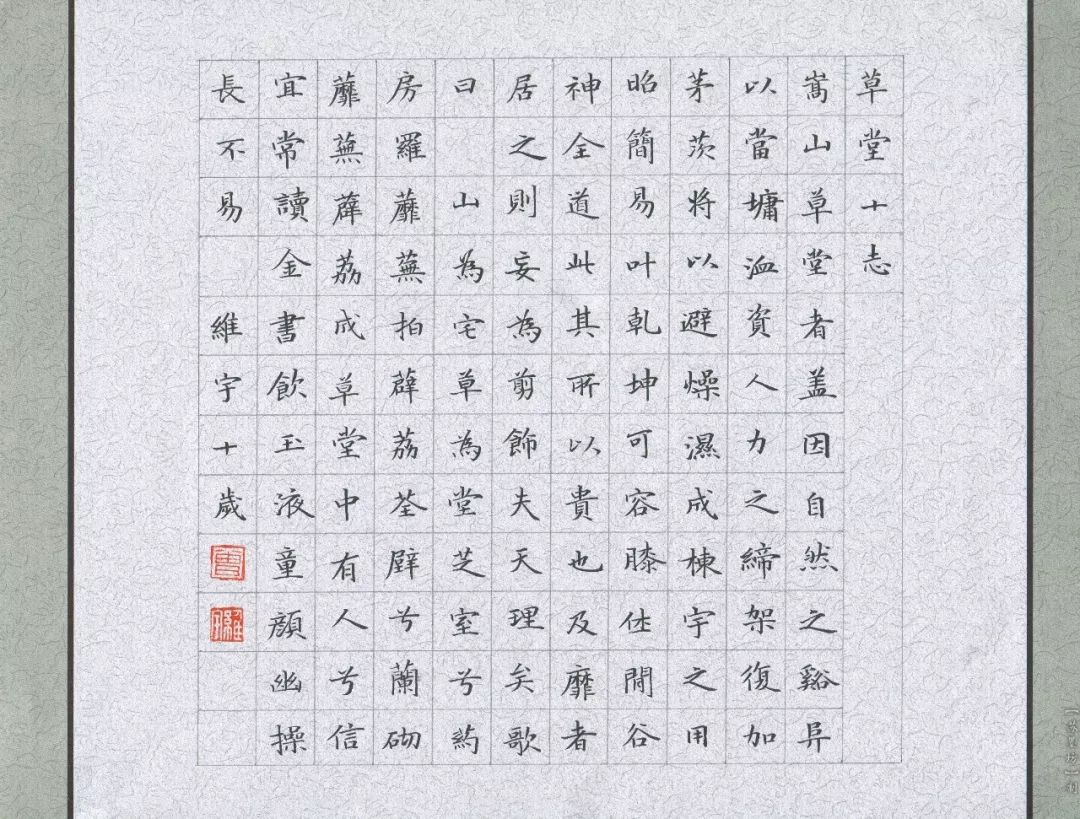 草堂十志
嵩山草堂者盖因自然之谿异
以當墉洫資人力之締架復加
茅茨将以避燥濕成棟宇之用
昭簡易叶乹坤可容膝休閒谷
神全道此其所以貴也及靡者
居之則妄為剪飾夫天理矣歌
曰 山為宅草為堂芝室兮葯
房羅蘼蕪拍薜荔荃壁兮蘭砌
蘼蕪薜荔成草堂中有人兮信
宜常讀金書飲玉液童顏幽操
長不易 維宇十歲